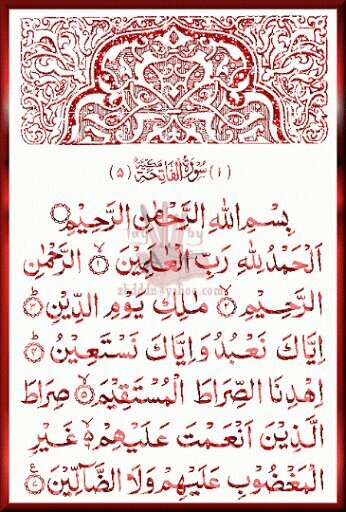 (۱) سُوْرَةُ الْفَاتِحَةِ مَكِّيَّةٌ (۵)
بِسْمِ اللهِ الرَّحْمٰنِ الرَّحِيْمِ
اَلْحَمْدُ لِلّٰهِ رَبِّ الْعٰلَمِيْنَ ۙ﴿۱﴾ الرَّحْمٰنِ
الرَّحِيْمِ ۙ﴿۲﴾ مٰلِكِ يَوْمِ الدِّيْنِ ؕ﴿۳﴾
اِيَّاكَ نَعْبُدُ وَاِيَّاكَ نَسْتَعِيْنُ ؕ﴿۴﴾
اِهْدِنَا الصِّرَاطَ الْمُسْتَقِيْمَ ۙ﴿۵﴾ صِرَاطَ
الَّذِيْنَ اَنْعَمْتَ عَلَيْهِمْ ۙ۬ غَيْرِ
الْمَغْضُوْبِ عَلَيْهِمْ وَلَا الضَّآلِّيْنَ ﴿۷﴾